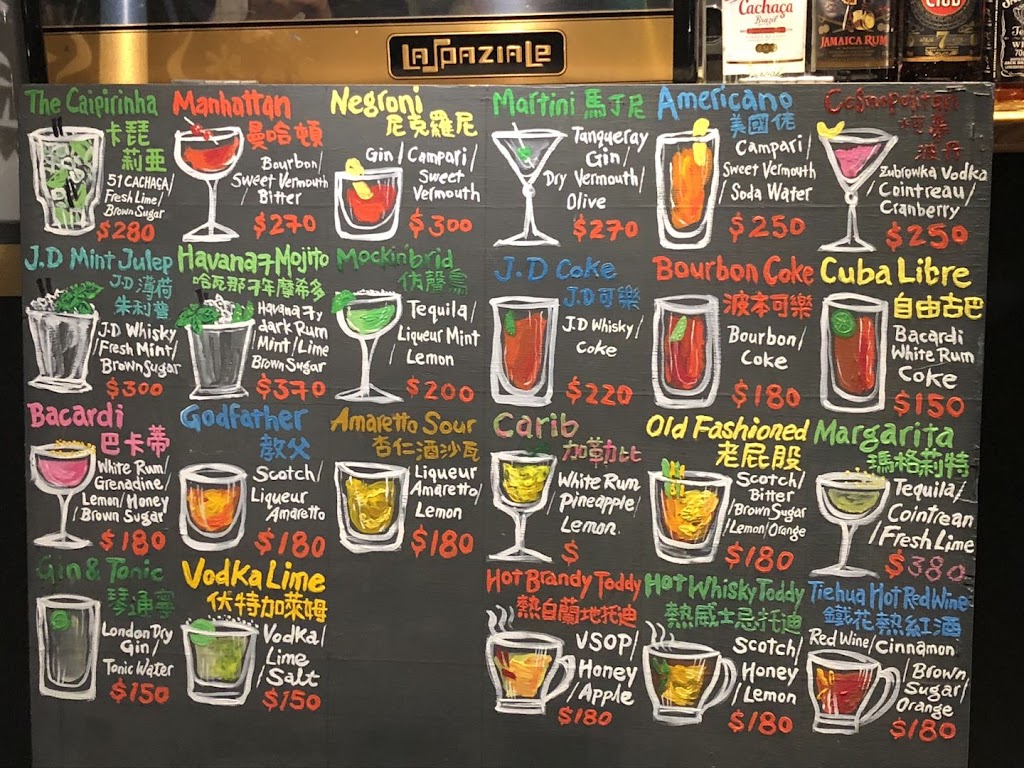 LaSpaziale
Cachaça
Brazil
JAMAICA RUM
CLUB
7
The Caipirinha
卡琵
莉亞
51 CACHACA/
Fresh Lime/
Brown Sugar
$280
Manhattan
曼哈頓
Bourbon/
Sweet Vermouth
Bitter
$270
Negroni
尼克羅尼
Gin/Campari/
Sweet
Vermouth
$300
Martini 馬丁尼
Tanqueray
Gin/
Dry Vermouth/
Olive
$270
Americano
美國佬
Campari/
Sweet Vermouth
Soda Water
$250
Cosmopolitan
柯夢
波丹
Zubrowka Vodka
Cointreau/
Cranberry
$250
J.D Mint Julep
J.D 薄荷
朱利普
J.D Whisky
/Fresh Mint/
Brown Sugar
$300
Havana 7 Mojito
哈瓦那7年摩希多
Havana 7y
dark Rum
Mint/Lime
Brown Sugar
$370
Mockinbrid
仿聲鳥
Tequila/
Liqueur Mint
Lemon
$200
J.D Coke
J.D 可樂
J.D Whisky/
Coke
$220
Bourbon Coke
波本可樂
Bourbon/
Coke
$180
Cuba Libre
自由古巴
Bacardi
White Rum
Coke
$150
Bacardi
巴卡蒂
White Rum/
Grenadine/
Lemon/Honey
Brown Sugar
$180
Godfather
教父
Scotch/
Liqueur
Amaretto
$180
Amaretto Sour
杏仁酒沙瓦
Liqueur
Amaretto/
Lemon
$180
Carib
加勒比
White Rum
Pineapple/
Lemon.
$
Old Fashioned
老屁股
Scotch/
Bitter
/Brown Sugar
Lemon/Orange
$180
Margarita
瑪格莉特
Tequila/
Cointrean
/Fresh Lime
$380
Gin & Tonic
琴通寧
London Dry
Gin/
Tonic Water
$150
Vodka Lime
伏特加萊姆
Vodka/
Lime
/Salt
$150
Hot Brandy Toddy
熱白蘭地托迪
VSOP/
Honey
/Apple
$180
Hot Whisky Toddy
熱威士忌托迪
Scotch/
Honey
Lemon
$180
Tiehua Hot Red Wine
鐵花熱紅酒
Red Wine/Cinnamon
/Brown
Sugar/
Orange
$180